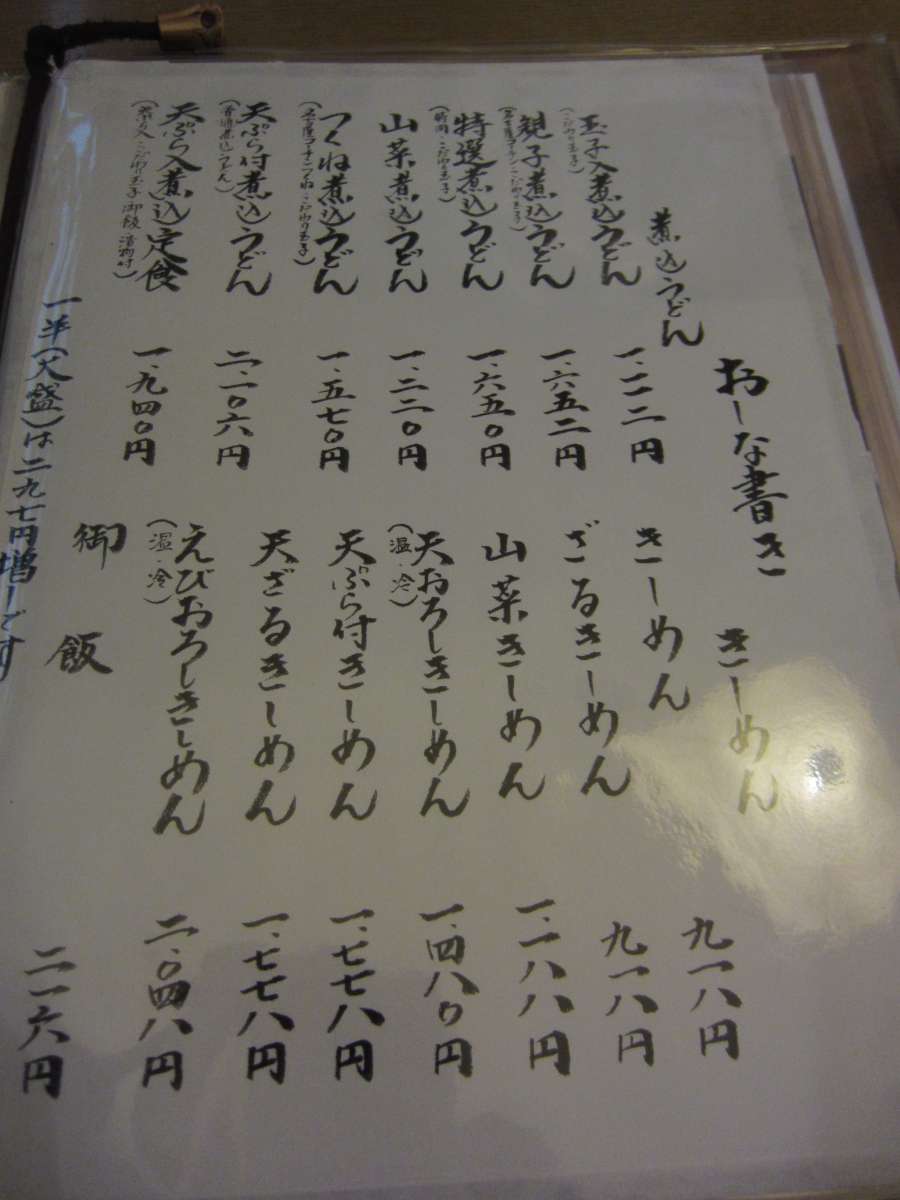 おしな書き
煮込うどん
玉子入煮込うどん 一、一二二円
(こだわり玉子)
親子煮込うどん 一、六五二円
(名古屋コーチン・こだわり玉子)
特選煮込うどん 一、六五〇円
山菜煮込うどん 一、二二〇円
つくね煮込うどん 一、五七〇円
(名古屋コーチンつくね・こだわり玉子)
天ぷら付煮込うどん 二、一〇六円
(普通煮込うどん)
天ぷら入煮込定食 一、九四〇円
きしめん
きしめん 九一八円
ざるきしめん 九一八円
山菜きしめん 一、一八八円
天おろしきしめん 一、四八〇円
(温・冷)
天ぷら付きしめん 一、七七八円
天ざるきしめん 一、七七八円
えびおろしきしめん 二、〇四八円
(温・冷)
御飯 二一六円
一半(大盛)は二九七円増しです